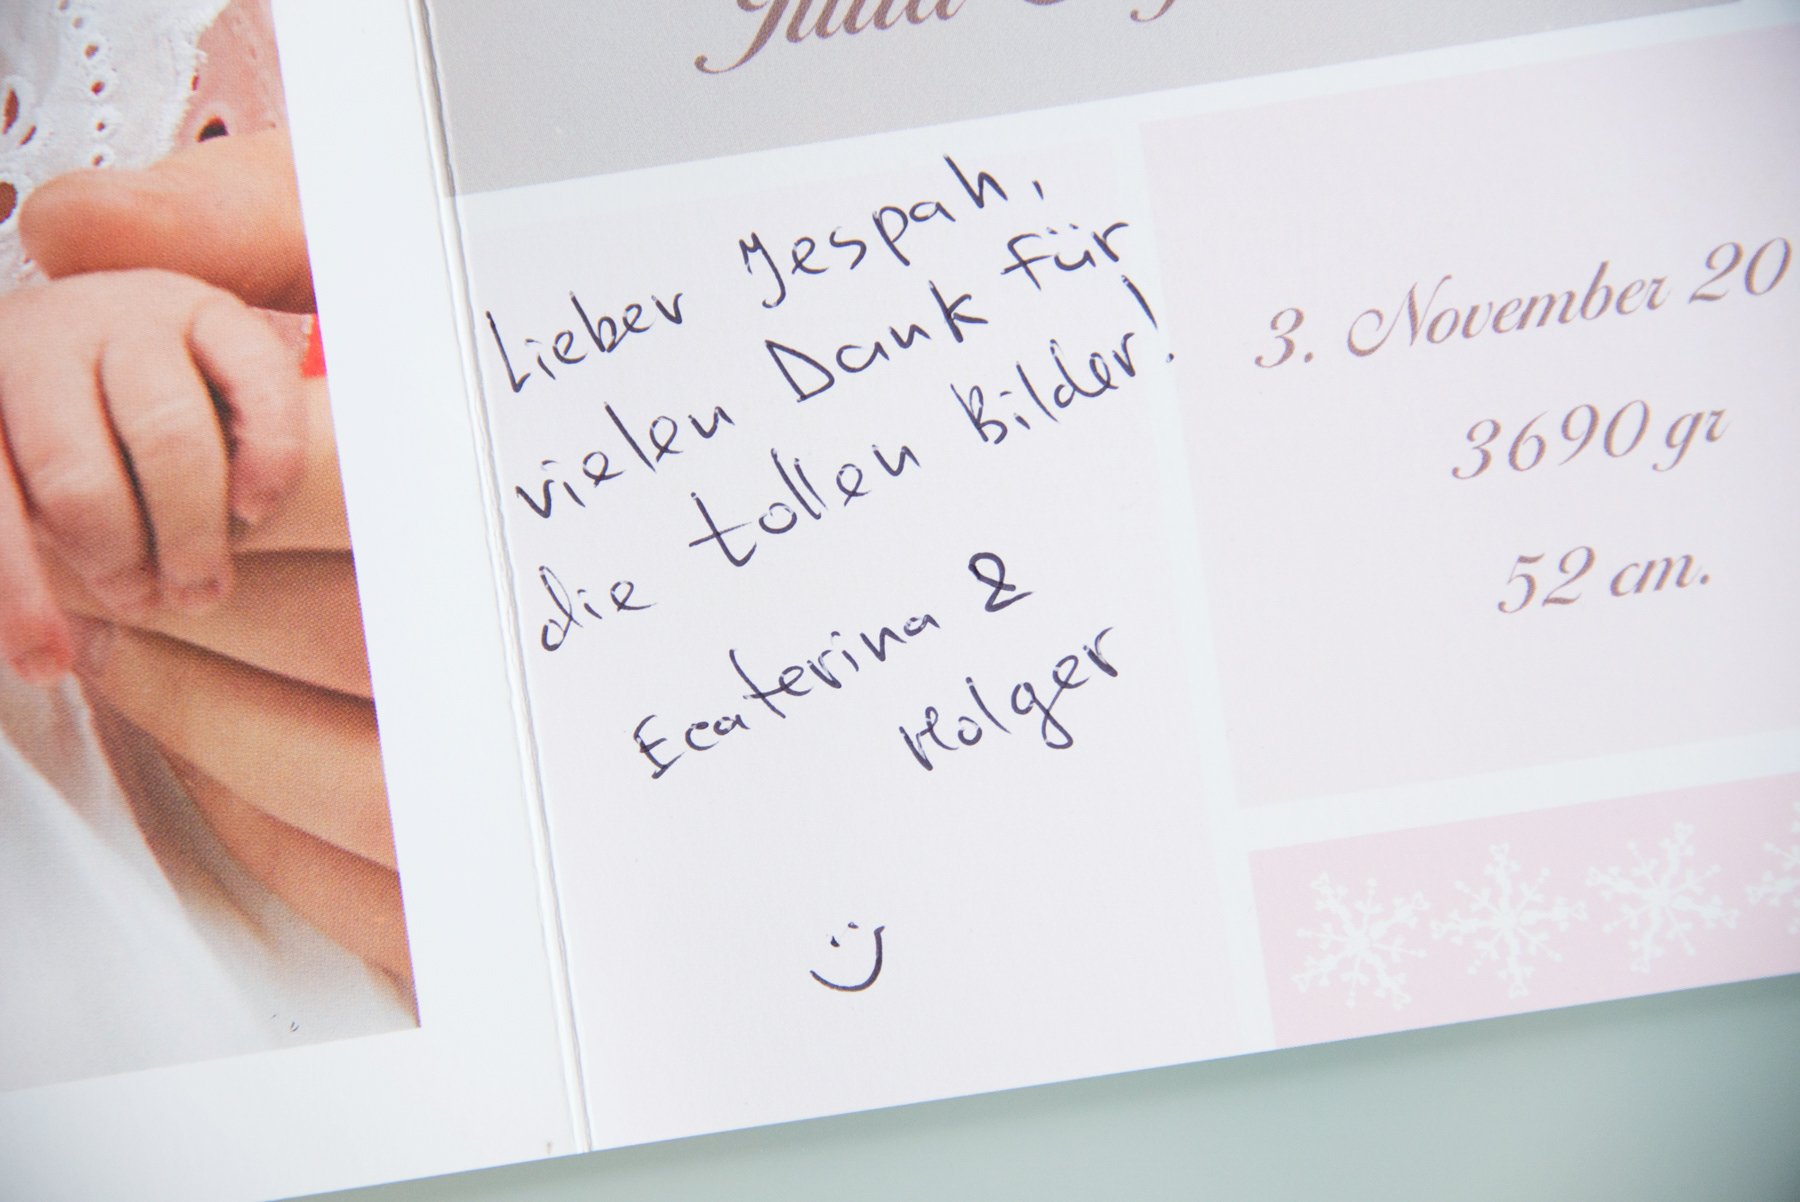 Lieber Jespah,
vielen Dank für
die tollen Bilder!
Ecaterina &
Holger
3. November 20
3690 gr
52 cm.